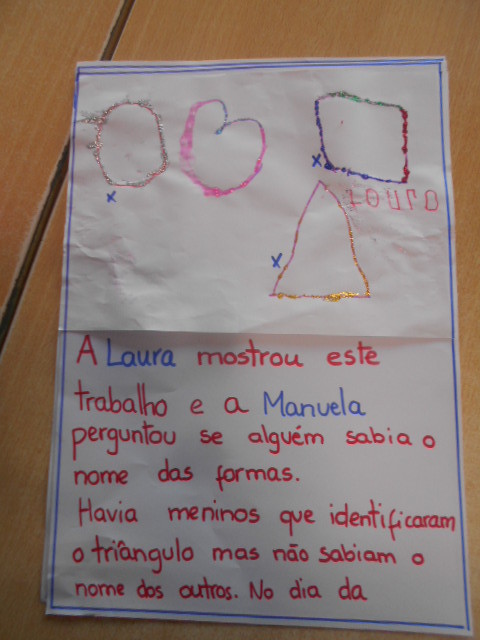 A Laura mostrou este
trabalho e a Manuela
perguntou se alguém sabia o
nome das formas.
Havia meninos que identificaram
o triângulo mas não sabiam o
nome dos outros. No dia da